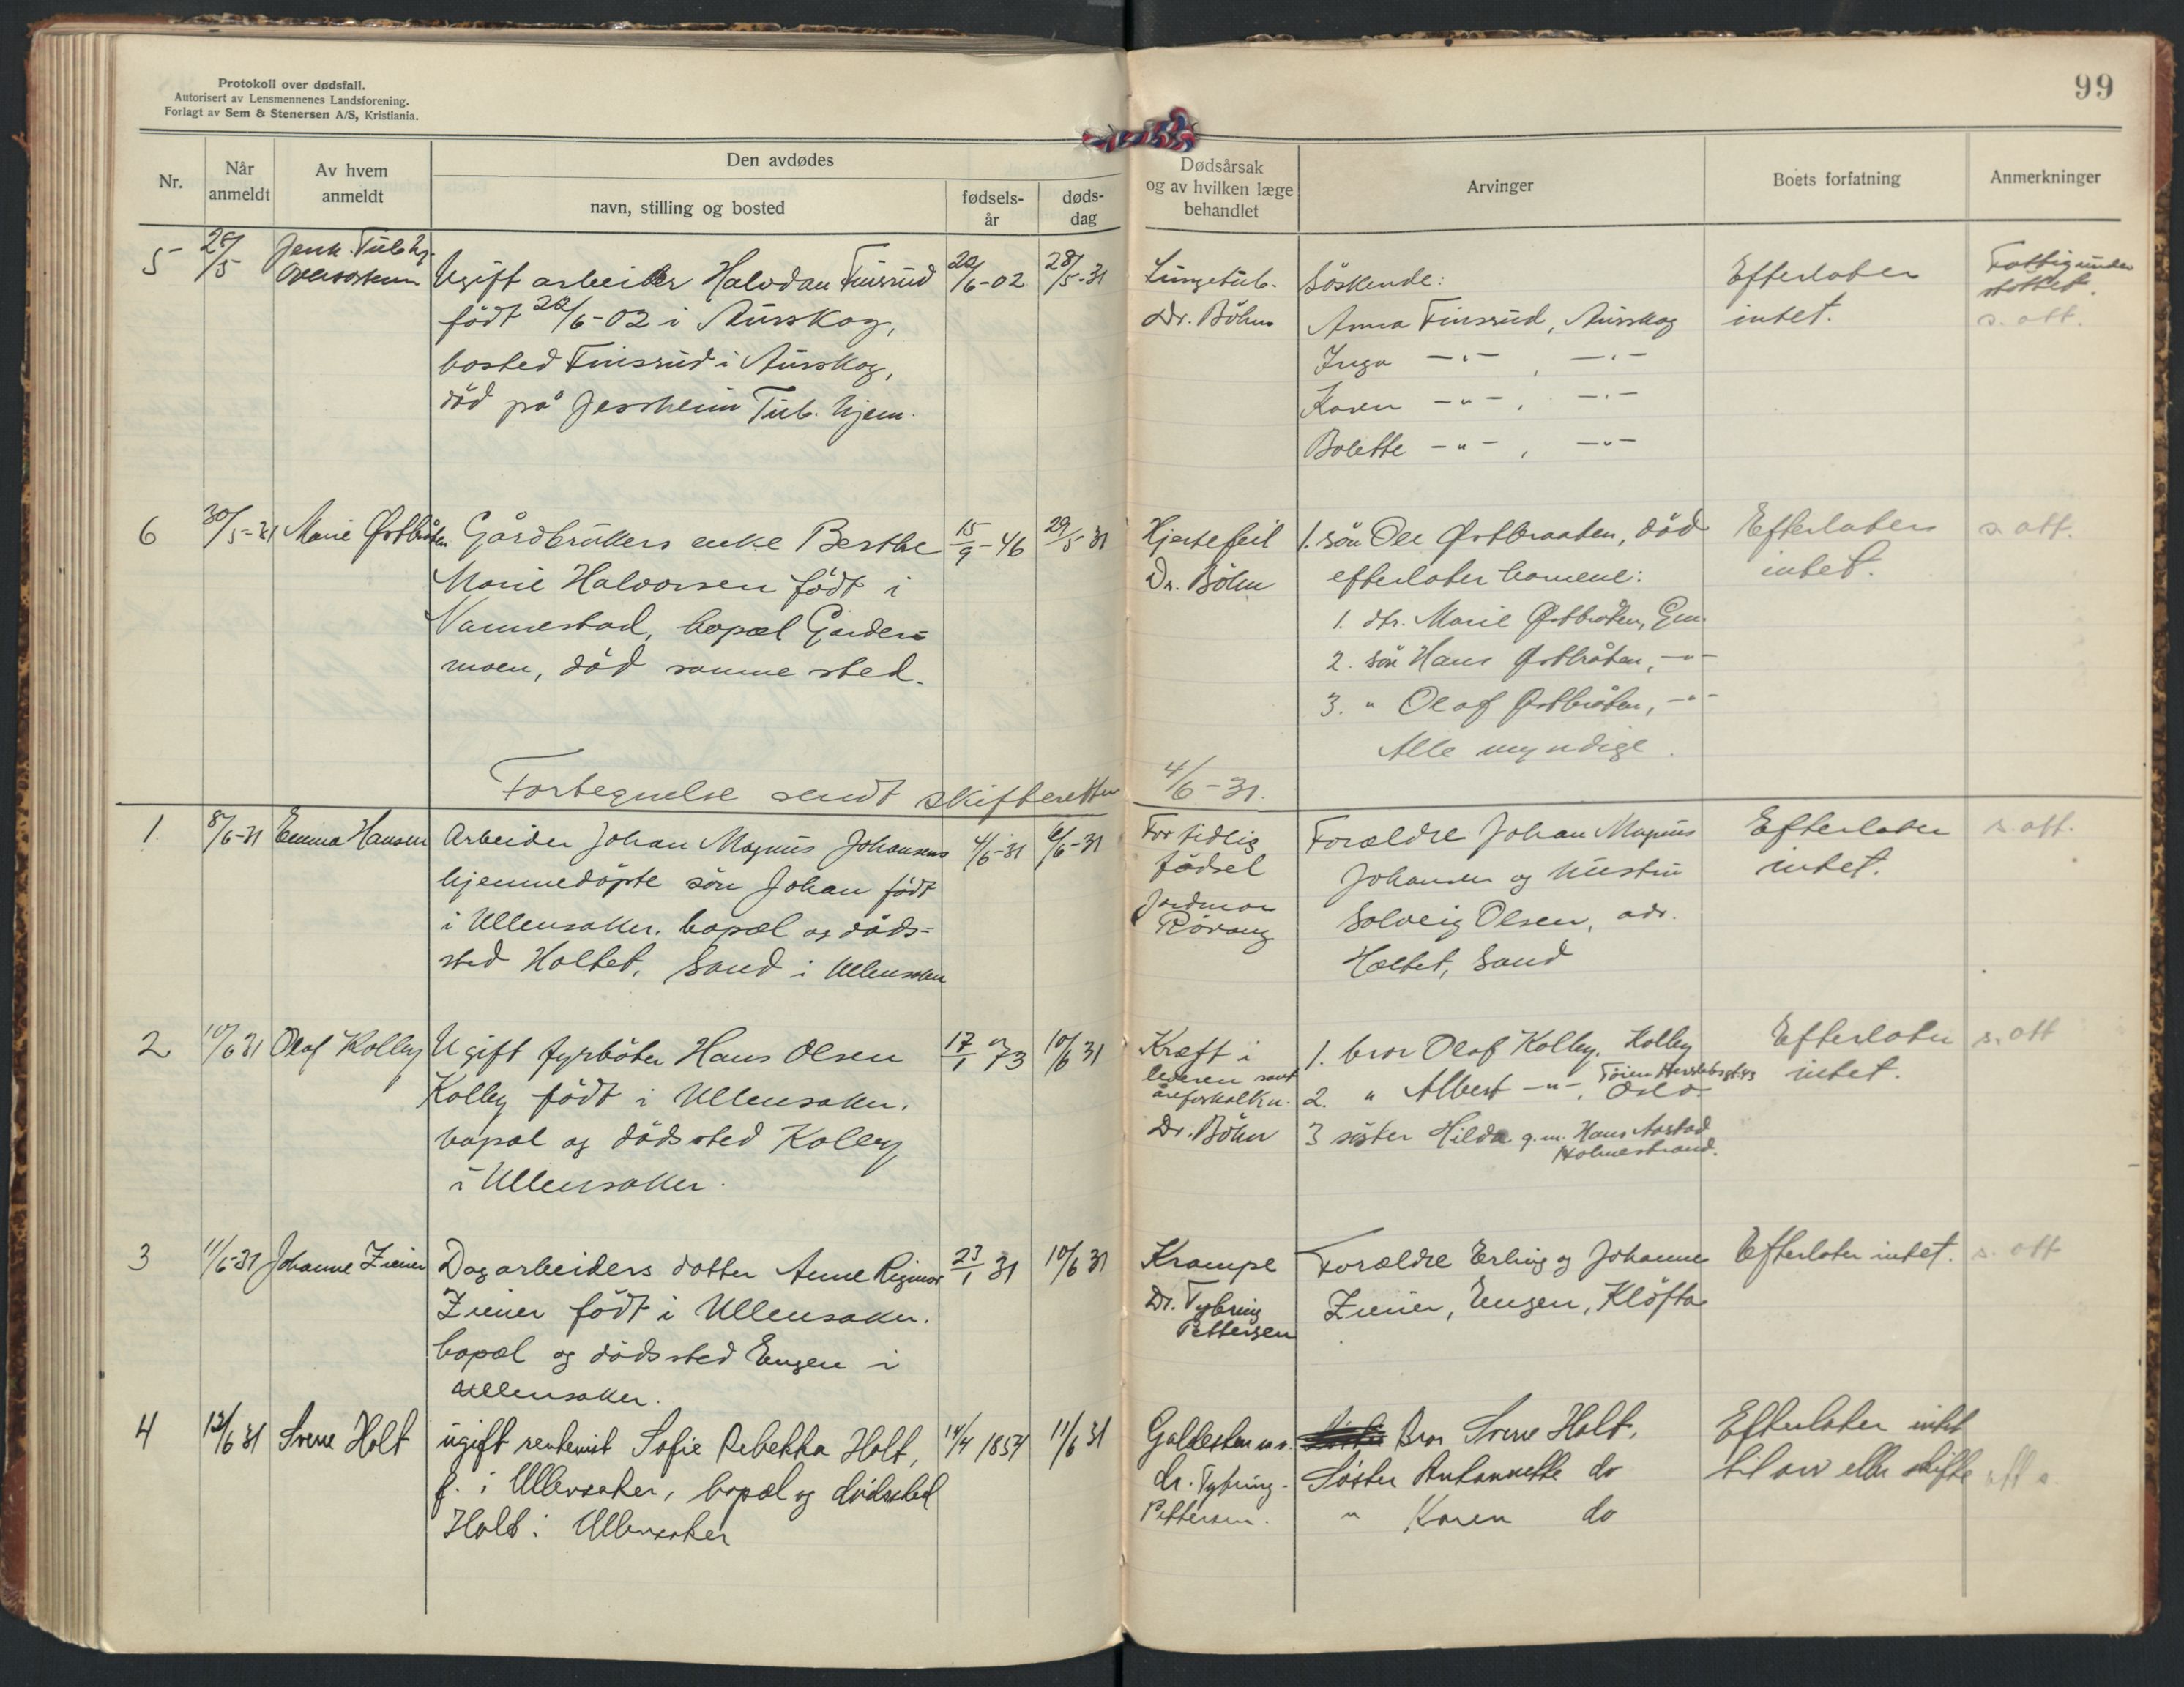 Protokoll over dødsfall.
Autorisert av Lensmennenes Landsforening.
Forlagt av Sem & Stenersen A/S, Kristiania.
99
Nr.
Når anmeldt
Av hvem anmeldt
Den avdødes
navn, stilling og bosted
fødsels-år
døds-dag
Dødsårsak og av hvilken læge behandlet
Arvinger
Boets forfatning
Anmerkninger
5
28/5
Jessh. Tub.hj.
Oversøsteren
Ugift arbeider Halvdan Finsrud
født 22/6-02 i Aurskog,
bosted Finsrud i Aurskog,
död på Jessheim Tub. hjem.
22/6-02
28/5-31
Lungetub.
Dr. Böhm
Söskende:
Anna Finsrud, Aurskog
Inga -"- , -"-
Karen -"- , -"-
Bolette -"- , -"-
Efterlater
intet.
Fattigunder
støttet.
s. att.
6
30/5-31
Marie Østbråten
Gårdbrukers enke Berthe
Marie Halvorsen födt i
Nannestad, bopæl Garder=
moen, död samme sted.
15/9-46
29/5 31
Hjertefeil
Dr. Böhm
1. sön Ole Østbraaten, död
efterlater barnene:
1. dtr. Marie Østbråten, Gm.
2. sön Hans Østbråten, -"-
3. " Olaf Østbråten, -"-
Alle myndige.
Efterlater
intet.
s. att.
Fortegnelse sendt skifteretten 4/6-31.
1.
8/6-31
Emma Hansen
Arbeider Johan Magnus Johansens
hjemmedöpte sön Johan födt
i Ullensaker. bopæl og döds=
sted Holtet, Sand i Ullensaker
4/6-31
6/6-31
For tidlig
födsel
Jordmor
Rövang
Forældre Johan Magnus
Johansen og hustru
Solveig Olsen, adr.
Holtet, Sand
Efterlater
intet.
s. att.
2
10/6 31
Olaf Kolby
Ugift fyrböter Hans Olsen
Kolby födt i Ullensaker.
bopæl og dödssted Kolby
i Ullensaker.
17/1 73
10/6 31
Kræft i
leveren samt
åreforkalkn.
Dr. Böhm
1. bror Olaf Kolby, Kolby
2. " Albert -"-, Tøien Herslebsgt. 43
Oslo
3 söster Hilda g.m. Hans Aastad
Holmestrand.
Efterlater
intet.
s. att
3
11/6-31
Johanne Ziener
Dagarbeiders datter Anne Rigmor
Ziener födt i Ullensaker.
bopæl og dödssted Engen i
Ullensaker.
23/1 31
10/6 31
Krampe
Dr. Tybring
Pettersen
Forældre Erling og Johanne
Ziener, Engen, Klöfta
Efterlater intet.
s. att
4
12/6 31
Sverre Holt
ugift rentenist Sofie Rebekka Holt,
f. i Ullensaker, bopæl og dødssted
Holt i Ullensaker
14/4 1854
11/6 31
Galdesten m.v.
dr. Tybring-
Pettersen.
Bror Sverre Holt.
Søster Antonnette do
" Karen do
Efterlater intet
til arv eller skifte
att s.